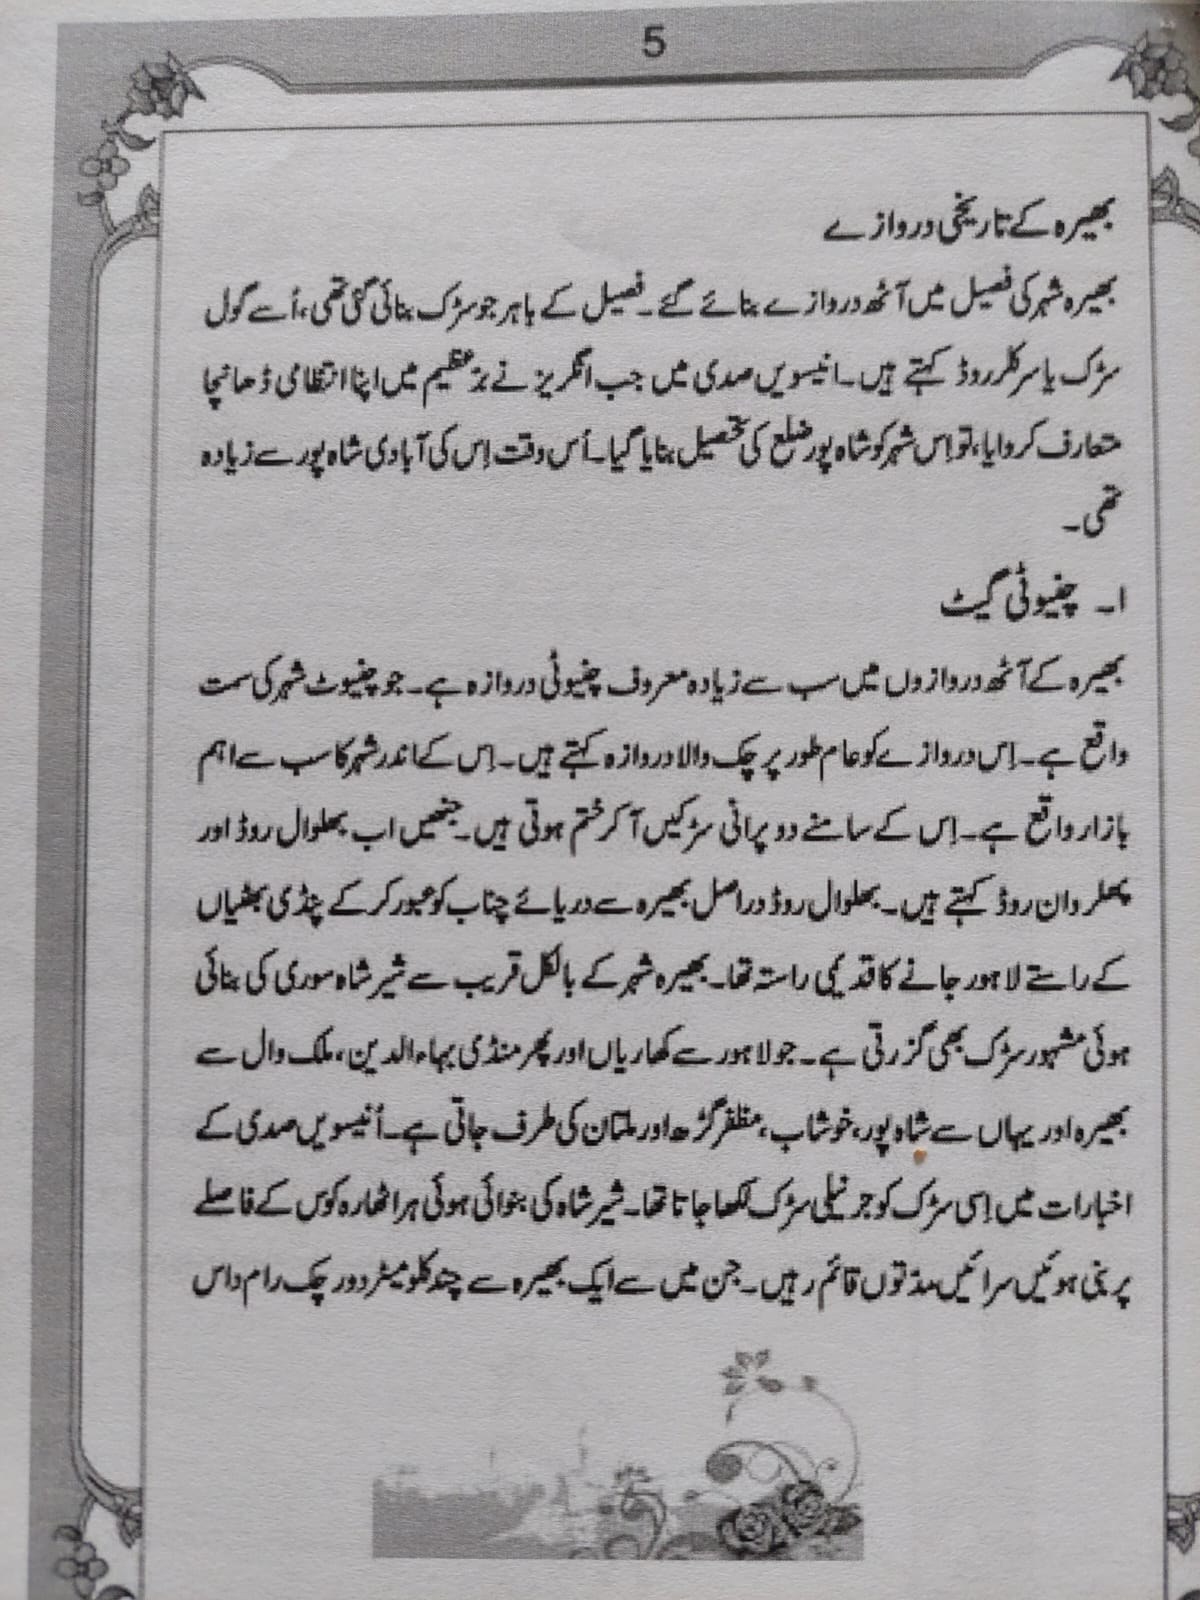 5
بھیرہ کے تاریخی دروازے
بھیرہ شہر کی فصیل میں آٹھ دروازے بنائے گئے۔ فصیل کے باہر جو سڑک بنائی گئی تھی، اُسے گول
سڑک یا سرکلر روڈ کہتے ہیں۔ انیسویں صدی میں جب انگریز نے برّعظیم میں اپنا انتظامی ڈھانچا
متعارف کروایا، تو اِس شہر کو شاہ پور ضلع کی تحصیل بنایا گیا۔ اُس وقت اِس کی آبادی شاہ پور سے زیادہ
تھی۔
۱۔ چنیوٹی گیٹ
بھیرہ کے آٹھ دروازوں میں سب سے زیادہ معروف چنیوٹی دروازہ ہے۔ جو چنیوٹ شہر کی سمت
واقع ہے۔ اِس دروازے کو عام طور پر چک والا دروازہ کہتے ہیں۔ اِس کے اندر شہر کا سب سے اہم
بازار واقع ہے۔ اِس کے سامنے دو پرانی سڑکیں آ کر ختم ہوتی ہیں۔ جنھیں اب بھلوال روڈ اور
پھلروان روڈ کہتے ہیں۔ بھلوال روڈ دراصل بھیرہ سے دریائے چناب کو عبور کر کے پنڈی بھٹیاں
کے راستے لاہور جانے کا قدیمی راستہ تھا۔ بھیرہ شہر کے بالکل قریب سے شیر شاہ سوری کی بنائی
ہوئی مشہور سڑک بھی گزرتی ہے۔ جو لاہور سے کھاریاں اور پھر منڈی بہاءالدین، ملک وال سے
بھیرہ اور یہاں سے شاہ پور، خوشاب، مظفر گڑھ اور ملتان کی طرف جاتی ہے۔ اُنیسویں صدی کے
اخبارات میں اِسی سڑک کو جرنیلی سڑک لکھا جاتا تھا۔ شیر شاہ کی بنوائی ہوئی ہر اٹھارہ کوس کے فاصلے
پر بنی ہوئیں سرائیں مدّتوں قائم رہیں۔ جن میں سے ایک بھیرہ سے چند کلومیٹر دور چک رام داس